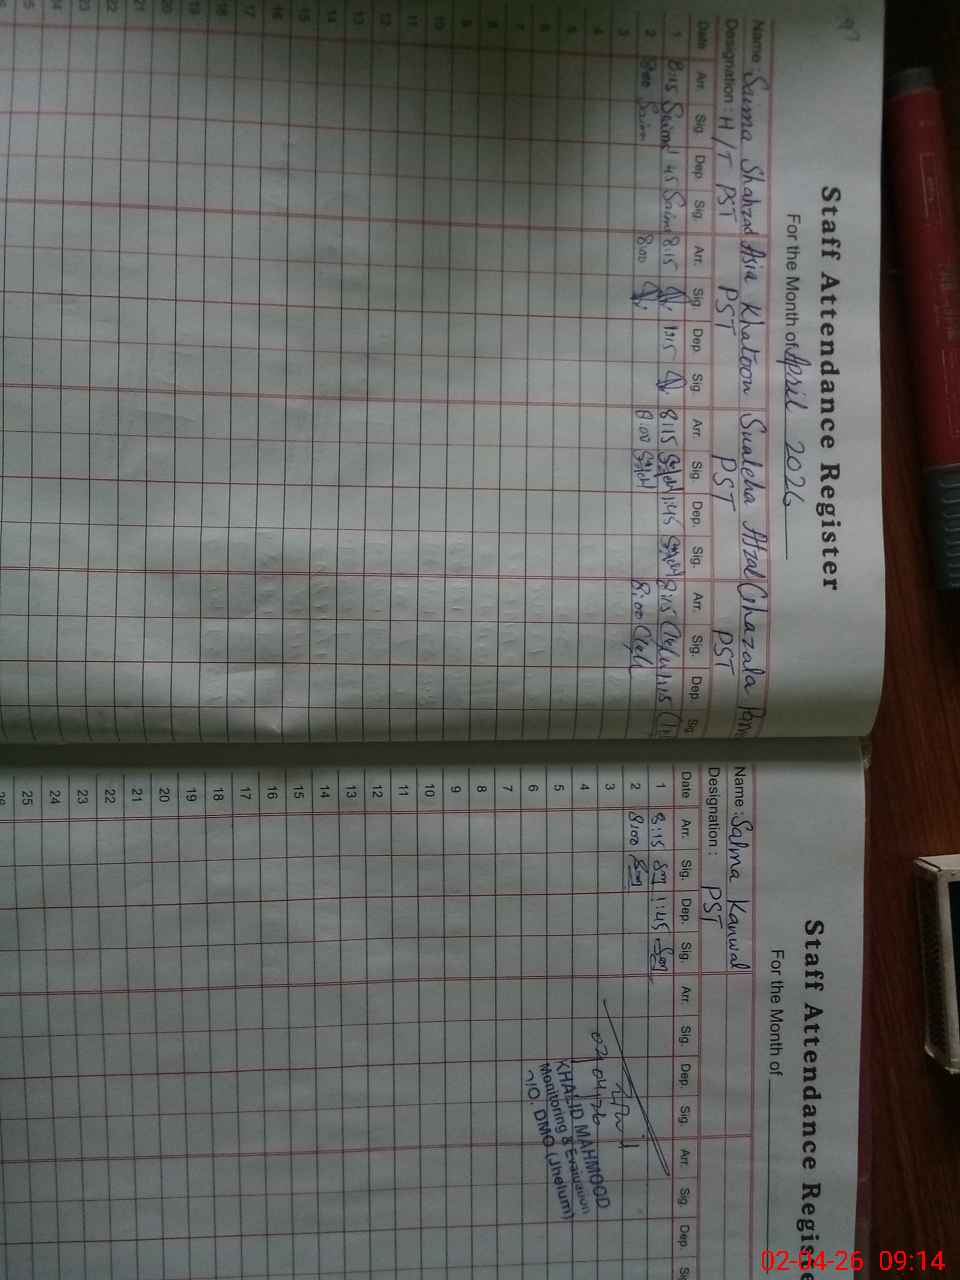 Staff Attendance Register
For the Month of April 2026
Name : Saima Shahzad Asia Khatoon Sualeha Afzal Ghazala
Designation : H/T PST PST PST PST
Date Arr. Sig. Dep. Sig. Arr. Sig. Dep. Sig. Arr. Sig. Dep. Sig. Arr. Sig. Dep. Sig.
1 8:15 Saima 8:15 8:15 1:45 8:15
2 8:00 Saima 8:00 8:00 8:00
3
4
5
6
7
8
9
10
11
12
13
14
15
16
17
18
19
20
21
22
23
24
25
Staff Attendance Registe
For the Month of
Name : Salma Kanwal
Designation : PST
Date Arr. Sig. Dep. Sig. Arr. Sig. Dep. Sig. Arr. Sig. Dep.
1 8:15 1:45
2 8:00
3
4
5
6
7
8
9
10
11
12
13
14
15
16
17
18
19
20
21
22
23
24
25
KHALID MAHMOOD
Monitoring & Evaluation
O/O. DMO (Jhelum)
02-04-26 09:14